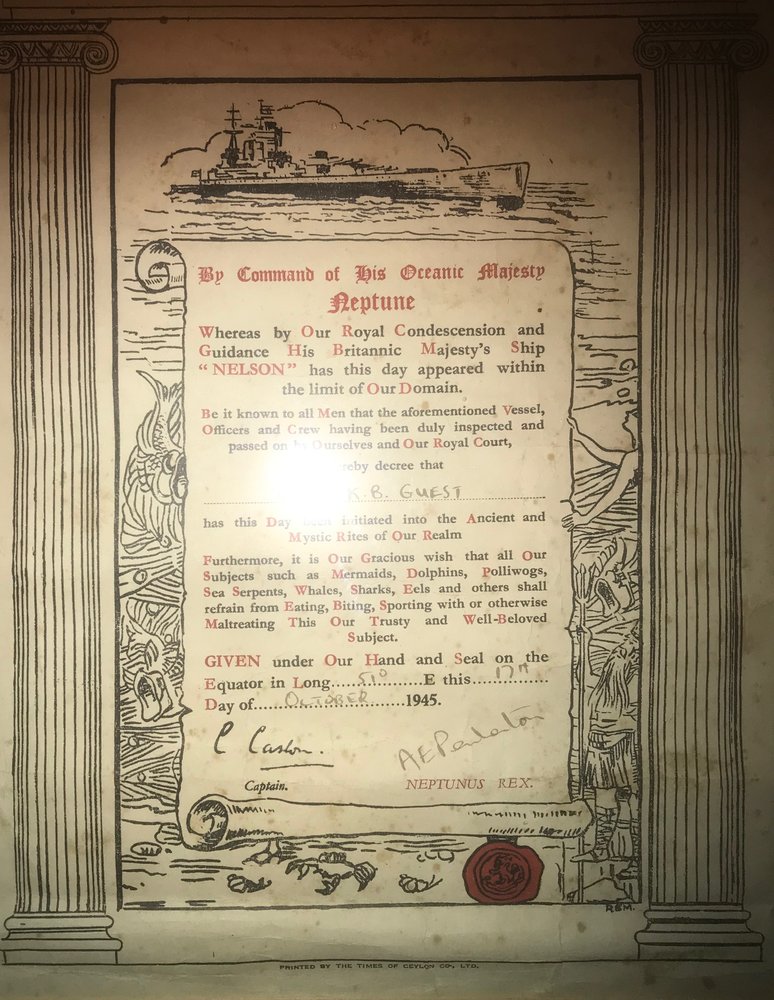 By Command of His Oceanic Majesty
Neptune
Whereas by Our Royal Condescension and
Guidance His Britannic Majesty's Ship
“NELSON” has this day appeared within
the limit of Our Domain.
Be it known to all Men that the aforementioned Vessel,
Officers and Crew having been duly inspected and
passed on by Ourselves and Our Royal Court,
decree that
K.B. GUEST
has this Day been initiated into the Ancient and
Mystic Rites of Our Realm
Furthermore, it is Our Gracious wish that all Our
Subjects such as Mermaids, Dolphins, Polliwogs,
Sea Serpents, Whales, Sharks, Eels and others shall
refrain from Eating, Biting, Sporting with or otherwise
Maltreating This Our Trusty and Well-Beloved
Subject.
GIVEN under Our Hand and Seal on the
Equator in Long.....51°.....E this.....17TH.....
Day of.....OCTOBER.....1945.
Captain.
NEPTUNUS REX.
PRINTED BY THE TIMES OF CEYLON CO., LTD.